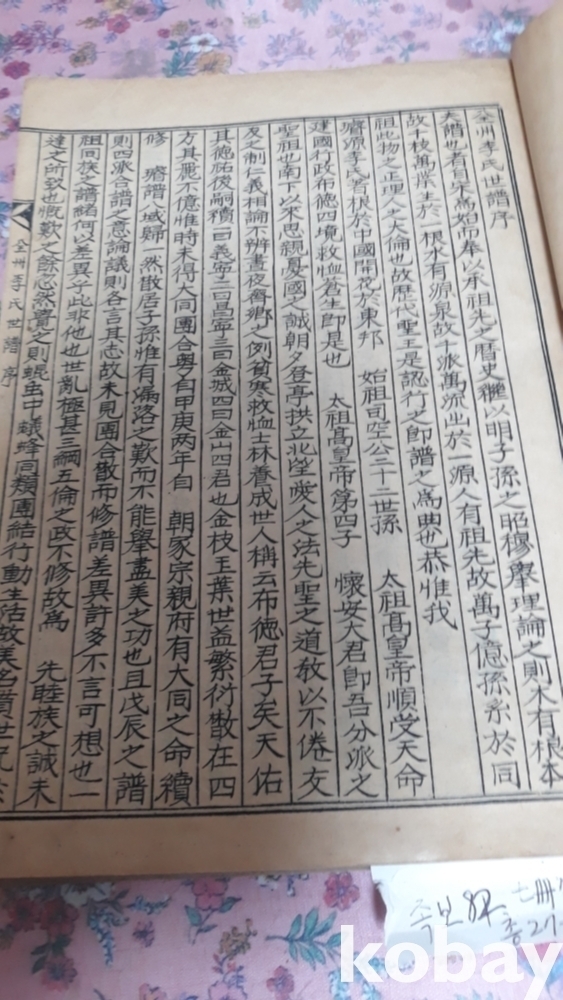 全州李氏世譜序
夫譜也者自宋爲始而奉以承祖先之曆史繼以明子孫之昭穆擧理論之則木有根本
故千枝萬葉生於一根水有源泉故千派萬流出於一源人有祖先故萬子億孫系於同
祖此物之正理人之大倫也故歷代聖王是認行之卽譜之爲典也恭惟我
璿源李氏者根於中國開花於東邦 始祖司空公二十二世孫 太祖高皇帝順受天命
建國行政布德四境救恤蒼生卽是也 太祖高皇帝第四子 懷安大君卽吾分派之
聖祖也南下以來思親憂國之誠朝夕登亭拱立北望愛人之法先聖之道敎以不倦友
友之制仁義相論不辨晝夜鄕之例貧寒救恤士林養成世人稱云布德君子矣天佑
其德祐後嗣續一曰義寧二曰昌寧三曰金城四曰金山四君也金枝玉葉世益繁衍散在四
方其麗不億惟時未得大同團合粤自甲庚两年自 朝家宗親府有大同之命續
修 璿譜一城歸一然散居子孫惟有漏落之歎而不能擧盡美之功也且戊辰之譜
則四派合譜之意論議則各言其志故未見團合散而修譜差異許多不言可想也一
祖同族之譜緖何以差異乎此非他也世亂極甚三綱五倫之政不修故爲 先睦族之誠未
達之所致也慨歎之餘忽然覺之則蜫虫中蟻蜂同類團結行動生活故美名
全州李氏世譜 序
족보
kobay